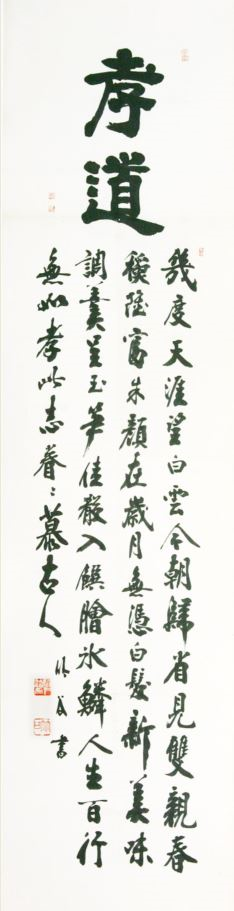 孝道
幾度天涯望白雲今朝歸省見雙親春
穐雖富朱顏在歲月無憑白髮新美味
調羹呈玉笋佳殽入饌膾氷鱗人生百行
無如孝此志眷〻慕古人
書